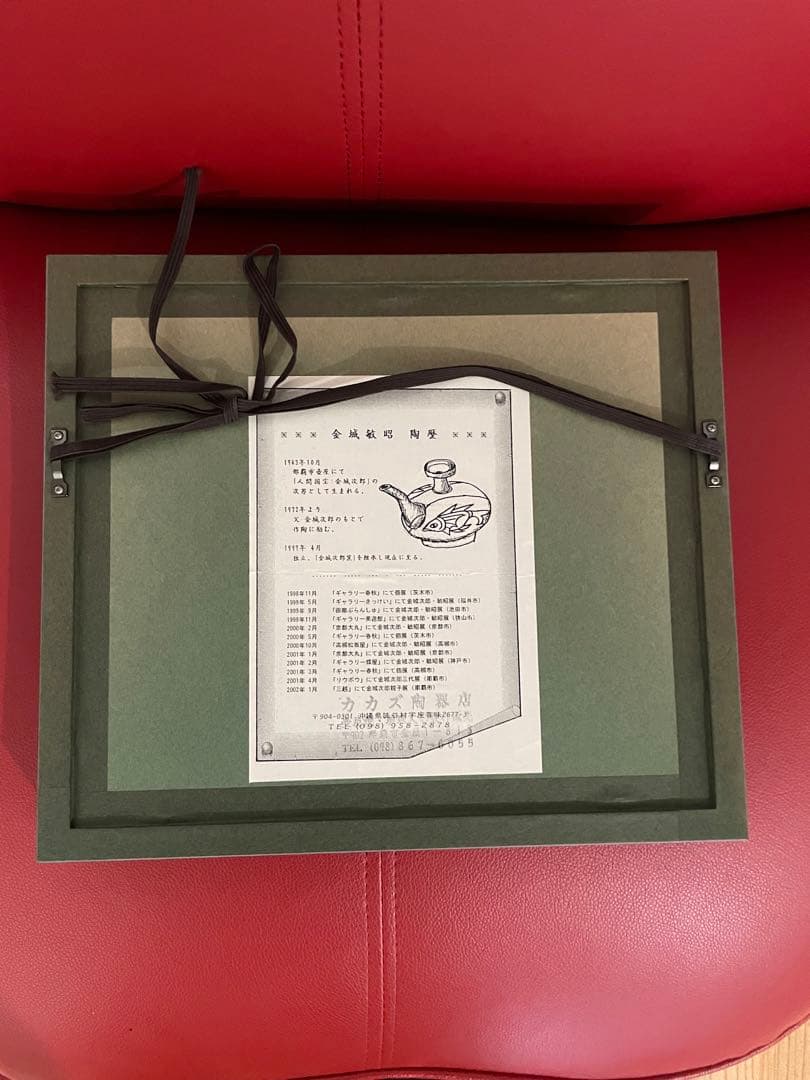 ※ ※ ※ 金城敏昭 陶歴 ※ ※ ※
1943年10月
那覇市壺屋にて
「人間国宝・金城次郎」の
次男として生まれる。
1972年より
父・金城次郎のもとで
作陶に励む。
1997年 4月
独立、「金城次郎窯」を継承し現在に至る。
1998年11月 「ギャラリー春秋」にて個展（茨木市）
1999年 5月 「ギャラリーきっけい」にて金城次郎・敏昭展（福井市）
1999年 9月 ぶらんしゅ」にて金城次郎・敏昭展（池田市）
1999年11月 「ギャラリー にて金城次郎・敏昭展（狭山市）
2000年 2月 「京都大丸」にて金城次郎・敏昭展（京都市）
2000年 5月 「ギャラリー春秋」にて個展（茨木市）
2000年10月 「高槻松坂屋」にて金城次郎・敏昭展（高槻市）
2001年 1月 「京都大丸」にて金城次郎・敏昭展（京都市）
2001年 2月 「ギャラリー蝶屋」にて金城次郎・敏昭展（神戸市）
2001年 3月 「ギャラリー春秋」にて個展（高槻市）
2001年 4月 「リウボウ」にて金城次郎三代展（那覇市）
2002年 1月 「三越」にて金城次郎親子展（那覇市）
カカズ陶器店
〒904-0301 沖縄県読谷村字座喜味2677-
TEL (098) 958-2878
〒902 那覇市
TEL (098) 867-6655